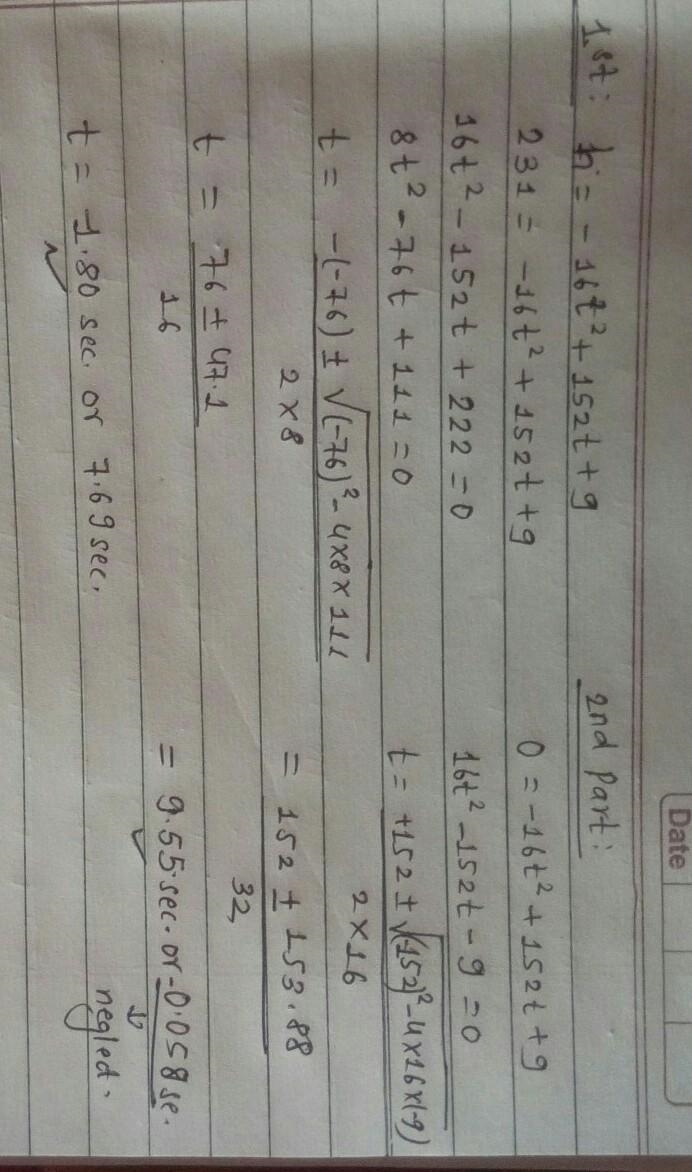 Date
1st: h = -16t² + 152t + 9
231 = -16t² + 152t + 9
16t² - 152t + 222 = 0
8t² - 76t + 111 = 0
t = -(-76) ± √(-76)² - 4×8×111
2×8
t = 76 ± 47.1
16
t = 1.80 sec. or 7.69 sec.
2nd Part:
0 = -16t² + 152t + 9
16t² - 152t - 9 = 0
t = +152 ± √(-152)² - 4×16×(-9)
2×16
= 152 ± 153.88
32,
= 9.55 sec. or -0.058 se.
↓
negled.